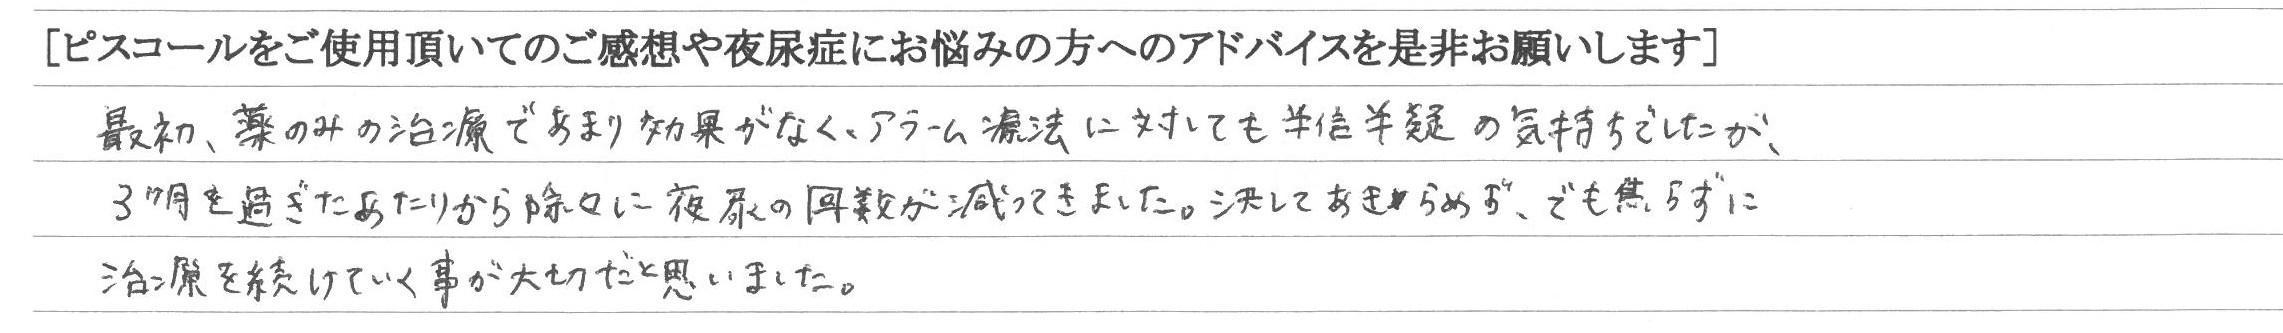 [ピスコールをご使用頂いてのご感想や夜尿症にお悩みの方へのアドバイスを是非お願いします]
最初、薬のみの治療であまり効果がなく、アラーム療法に対しても半信半疑の気持ちでしたが、
3ヶ月を過ぎたあたりから除々に夜尿の回数が減ってきました。決してあきらめず、でも焦らずに
治療を続けていく事が大切だと思いました。